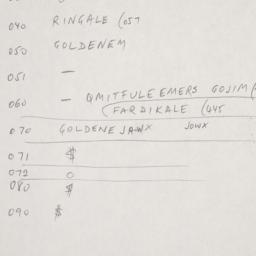 040 RINGALE (057
050 GOLDENEM
051 —
060 — QMITFULEEMERS GOJIM(
FARDIKALE (445
070 GOLDENE JAWX JOWX
071 $
072 0
080 $
090 $